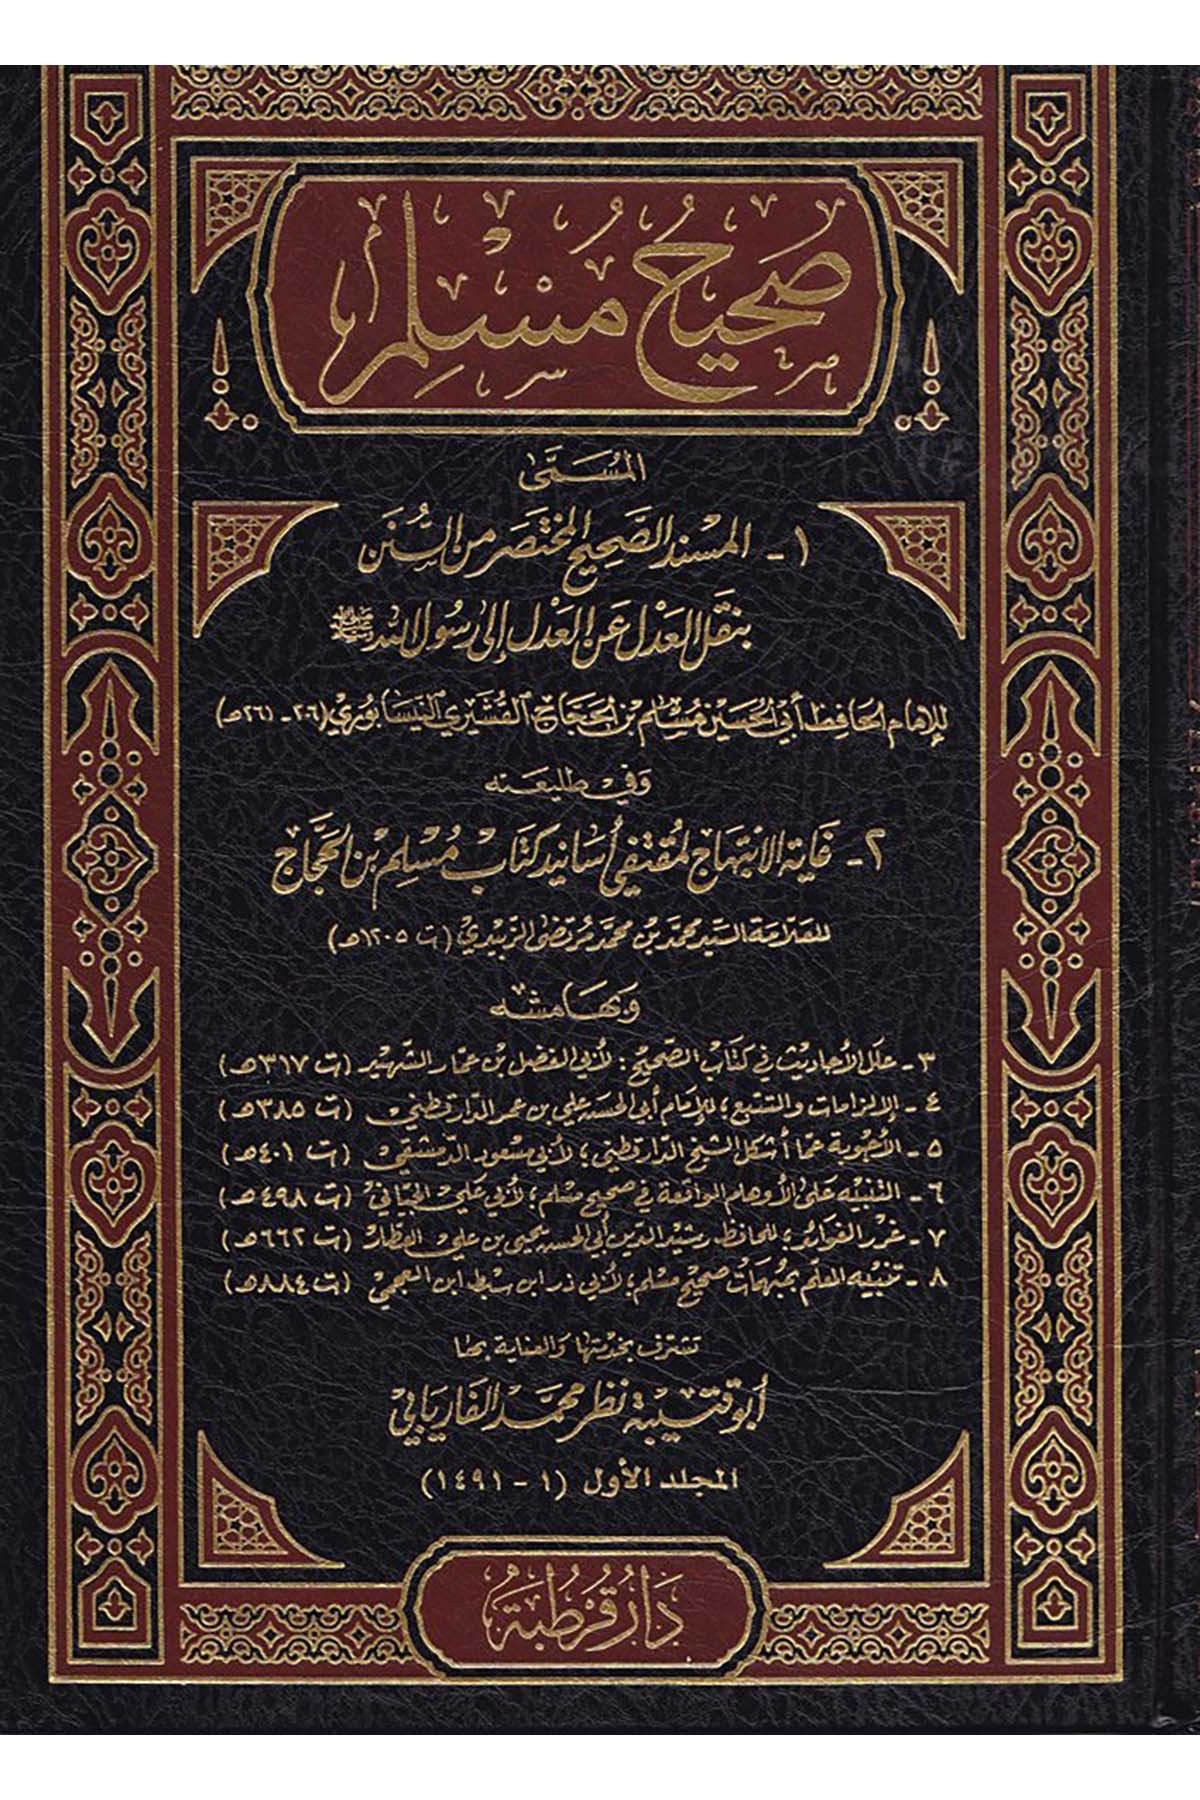 صحيح مسلم
المسمى
١ - المسند الصحيح المختصر من السنن
بنقل العدل عن العدل إلى رسول الله ﷺ
للإمام الحافظ أبي الحسين مسلم بن الحجاج القشيري النيسابوري (٢٠٦ - ٢٦١هـ)
وفي طليعته
٢ - غاية الابتهاج لمقتفي أسانيد كتاب مسلم بن الحجاج
للعلامة السيد محمد بن محمد مرتضى الزبيدي (ت ١٢٠٥هـ)
وبهامشه
٣ - علل الأحاديث في كتاب الصحيح؛ لأبي الفضل بن عمار الشهيد (ت ٣١٧هـ)
٤ - الإلزامات والتتبع؛ للإمام أبي الحسن علي بن عمر الدارقطني (ت ٣٨٥هـ)
٥ - الأجوبة عما أشكل الشيخ الدارقطني؛ لأبي مسعود الدمشقي (ت ٤٠١هـ)
٦ - التنبيه على الأوهام الواقعة في صحيح مسلم؛ لأبي علي الجياني (ت ٤٩٨هـ)
٧ - غرر الفوائد؛ للحافظ رشيد الدين أبي الحسن يحيى بن علي العطار (ت ٦٦٢هـ)
٨ - تنبيه المعلم بمبهمات صحيح مسلم؛ لأبي ذر ابن سبط ابن العجمي (ت ٨٨٤هـ)
تشرف بخدمتها والعناية بها
أبو قتيبة نظر محمد الفاريابي
المجلد الأول (١ - ١٤٩١)
دار قرطبة